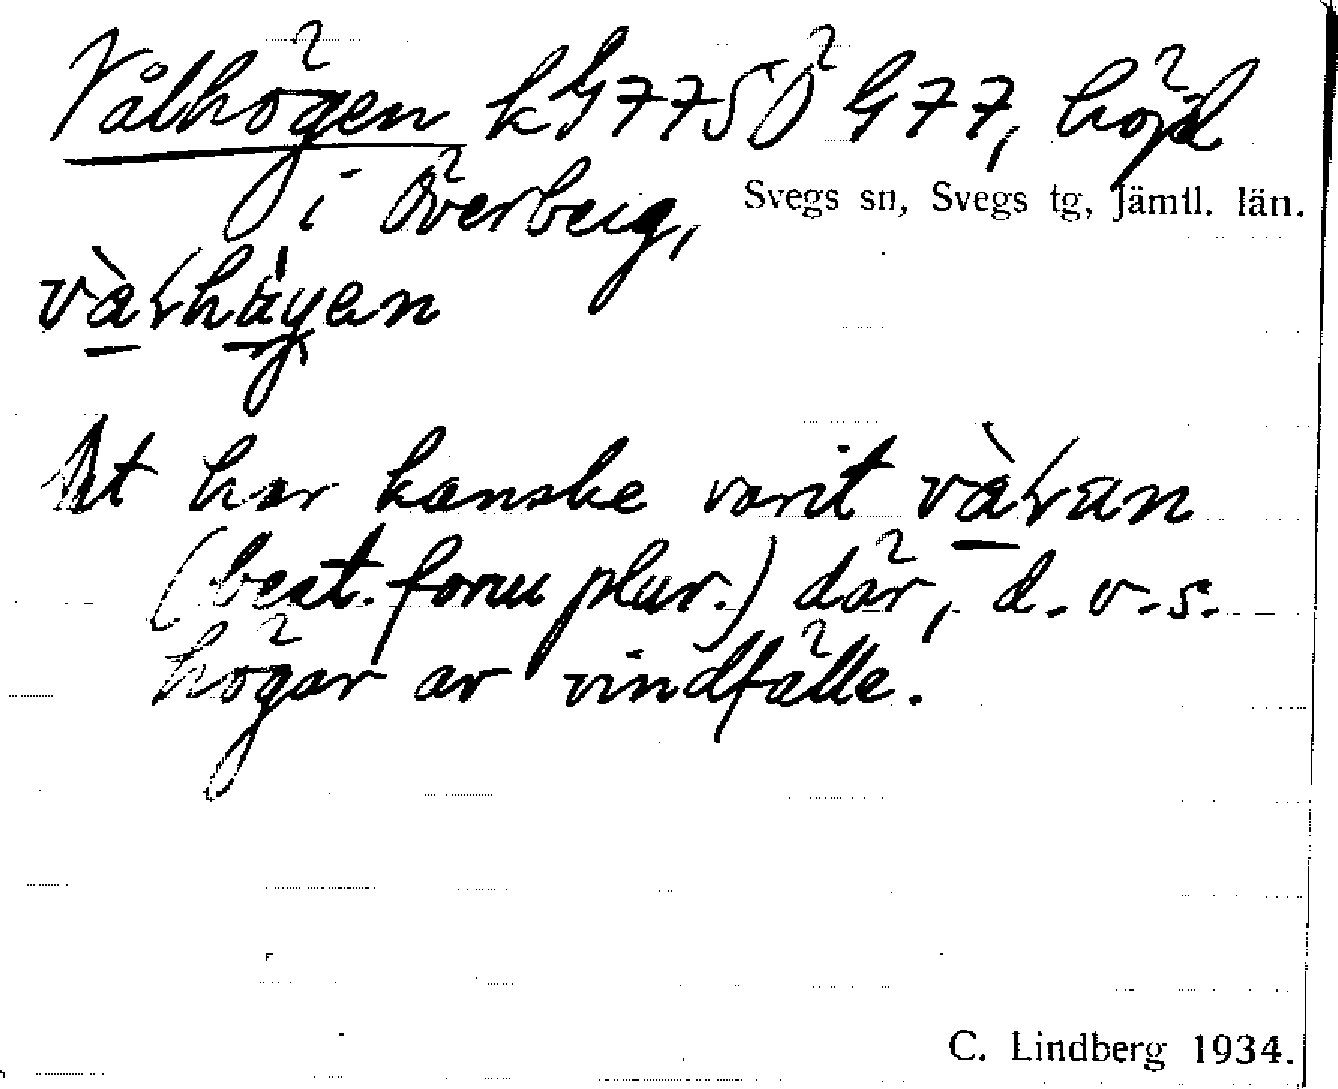 Vålhögen kG 77 SÖ G 77, höjd
i Överberg,
Svegs sn, Svegs tg, Jämtl. län.
Det har kanske varit
(best. form plur.) där, d. v. s.
högar av vindfälle.
C. Lindberg 1934.